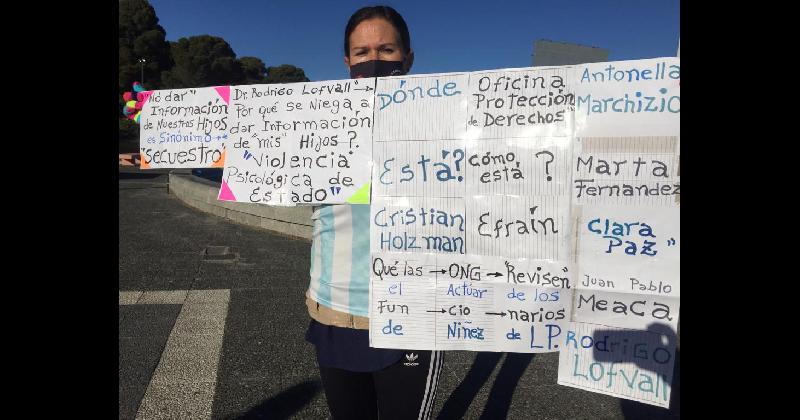 "No dar"
Información
de Nuestros Hijos
es Sinónimo →
"Secuestro"
Dr. Rodrigo Lofvall →
Por qué se Niega a
dar Información
de "mis" Hijos?.
"Violencia"
Psicológica de
Estado"
Dónde
Está?
Cristian
Holzman
Oficina
Protección
de Derechos"
Cómo
está ?
Efraín
Qué las → ONG → "Revisen"
el Actuar de los
Fun → cio → narios
de Niñez de LP.
Antonella
Marchizio
Marta
Fernandez
Clara
Paz"
Juan Pablo
Meaca
Rodrigo
Lofvall
adidas